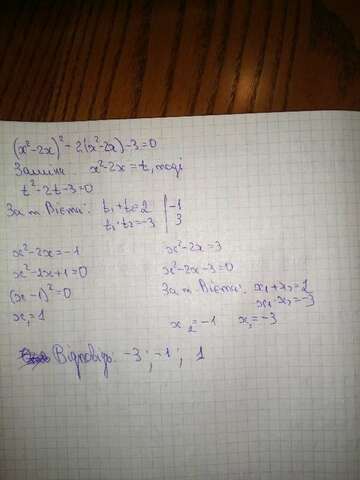 (x²-2x)²-2(x²-2x)-3=0
Заміна x²-2x=t, тоді
t²-2t-3=0
За т Вієта: t₁+t₂=2 | -1
t₁·t₂=-3 | 3
x²-2x=-1 x²-2x=3
x²-2x+1=0 x²-2x-3=0
(x-1)²=0 За т Вієта: x₁+x₂=2
x₁·x₂=-3
x₁=1
x₂=-1 x₃=-3
Відповідь: -3; -1; 1